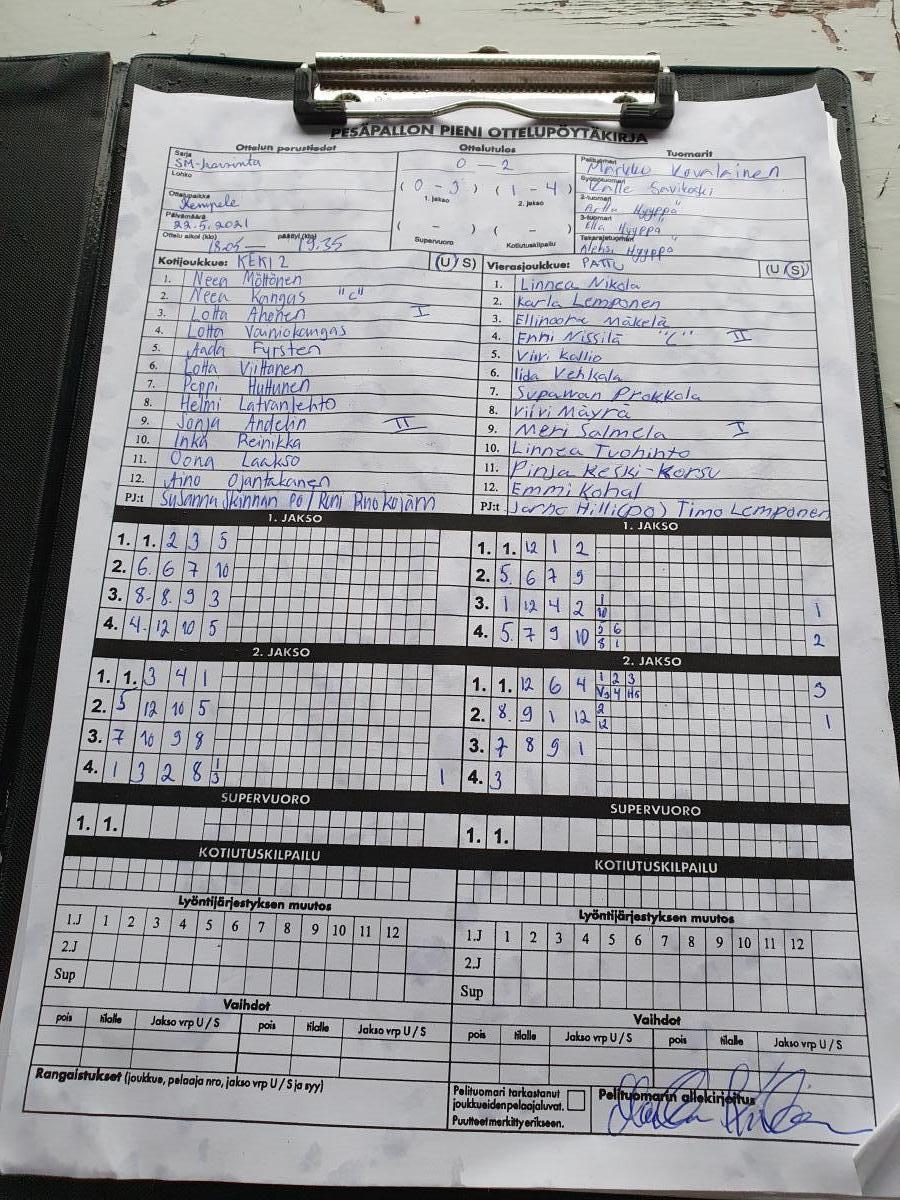 PESÄPALLON PIENI OTTELUPÖYTÄKIRJA
Ottelun perustiedot
Sarja
SM-karsinta
Lohko
Ottelupaikka
Kempele
Päivämäärä
22.5.2021
Ottelu alkoi (klo) 18.05 — päättyi (klo) 19.35
Ottelutulos
0 — 2
( 0 - 3 ) ( 1 - 4 )
1. jakso 2. jakso
( - ) ( - )
Supervuoro Kotiutuskilpailu
Tuomarit
Pelituomari Markko Kovalainen
Syöttötuomari Kalle Savikoski
2-tuomari Arttu Hyyppä
3-tuomari Ella Hyyppä
Takarajatuomari Aleksi Hyyppä
Kotijoukkue: KEKI 2 (U/S)
1. Neea Möttönen
2. Neea Kangas "C"
3. Lotta Ahonen I
4. Lotta Vainiokangas
5. Aada Fyrsten
6. Lotta Viittanen
7. Peppi Huttunen
8. Helmi Latvanlehto
9. Sonja Andelin II
10. Inka Reinikka
11. Oona Laakso
12. Aino Ojantakanen
PJ:t Susanna
Vierasjoukkue: PATTU (U/S)
1. Linnea Nikola
2. Karla Lemponen
3. Ellinoora Mäkelä
4. Enni Nissilä "C" II
5. Viivi Kallio
6. Iida Vehkala
7. Supawan Prokkola
8. Vilvi Mäyrä
9. Meri Salmela I
10. Linnea Tuohinto
11. Pinja Keski-Korsu
12. Emmi Kohal
PJ:t Jarno Hilli(po) Timo Lemponen
1. JAKSO
1. 1. 2 3 5
2. 6. 6 7 10
3. 8. 8. 9 3
4. 4. 12 10 5
2. JAKSO
1. 1. 3 4 1
2. 5 12 10 5
3. 7 10 9 8
4. 1 3 2 8 1/3 1
SUPERVUORO
1. 1.
KOTIUTUSKILPAILU
Lyöntijärjestyksen muutos
1.J 1 2 3 4 5 6 7 8 9 10 11 12
2.J
Sup
Vaihdot
pois tilalle Jakso vrp U / S pois tilalle Jakso vrp U / S
Rangaistukset (joukkue, pelaaja nro, jakso vrp U / S ja syy)
1. JAKSO
1. 1. 12 1 2
2. 5. 6 7 9
3. 1 12 4 2 1/10 1
4. 5. 7 9 10 5 6
8 1 2
2. JAKSO
1. 1. 12 6 4 1 2 3
V3 4 H5 3
2. 8. 9 1 12 2/12 1
3. 7 8 9 1
4. 3
SUPERVUORO
1. 1.
KOTIUTUSKILPAILU
Lyöntijärjestyksen muutos
1.J 1 2 3 4 5 6 7 8 9 10 11 12
2.J
Sup
Vaihdot
pois tilalle Jakso vrp U / S pois tilalle Jakso vrp U / S
Pelituomari tarkastanut
joukkueiden pelaajaluvat.
Puutteet merkitty erikseen.
Pelituomarin allekirjoitus